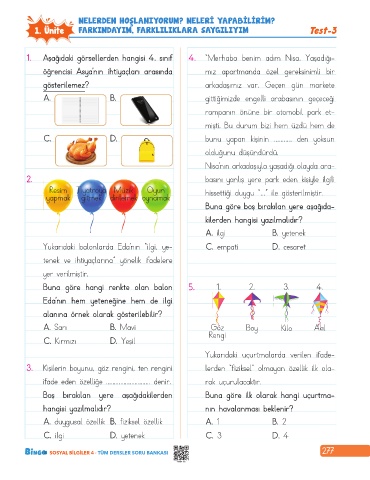 NELERDEN HOŞLANIYORUM? NELERİ YAPABİLİRİM?
1. Ünite
FARKINDAYIM, FARKLILIKLARA SAYGILIYIM
Test-3
1. Aşağıdaki görsellerden hangisi 4. sınıf
öğrencisi Asya'nın ihtiyaçları arasında
gösterilemez?
A. B.
C. D.
2.
Resim yapmak
Tiyatroya gitmek
Müzik dinlemek
Oyun oynamak
Yukarıdaki balonlarda Eda'nın "ilgi, ye-
tenek ve ihtiyaçlarına" yönelik ifadelere
yer verilmiştir.
Buna göre hangi renkte olan balon
Eda'nın hem yeteneğine hem de ilgi
alanına örnek olarak gösterilebilir?
A. Sarı B. Mavi
C. Kırmızı D. Yeşil
3. Kişilerin boyunu, göz rengini, ten rengini
ifade eden özelliğe ........................ denir.
Boş bırakılan yere aşağıdakilerden
hangisi yazılmalıdır?
A. duygusal özellik B. fiziksel özellik
C. ilgi D. yetenek
4. "Merhaba benim adım Nisa. Yaşadığı-
mız apartmanda özel gereksinimli bir
arkadaşımız var. Geçen gün markete
gittiğimizde engelli arabasının geçeceği
rampanın önüne bir otomobil park et-
mişti. Bu durum bizi hem üzdü hem de
bunu yapan kişinin ........... den yoksun
olduğunu düşündürdü.
Nisa'nın arkadaşıyla yaşadığı olayda ara-
basını yanlış yere park eden kişiyle ilgili
hissettiği duygu "...." ile gösterilmiştir.
Buna göre boş bırakılan yere aşağıda-
kilerden hangisi yazılmalıdır?
A. ilgi B. yetenek
C. empati D. cesaret
5. 1. 2. 3. 4.
Göz Rengi
Boy
Kilo
Aile
Yukarıdaki uçurtmalarda verilen ifade-
lerden "fiziksel" olmayan özellik ilk ola-
rak uçurulacaktır.
Buna göre ilk olarak hangi uçurtma-
nın havalanması beklenir?
A. 1 B. 2
C. 3 D. 4
BİNGO SOSYAL BİLGİLER 4 - TÜM DERSLER SORU BANKASI
277